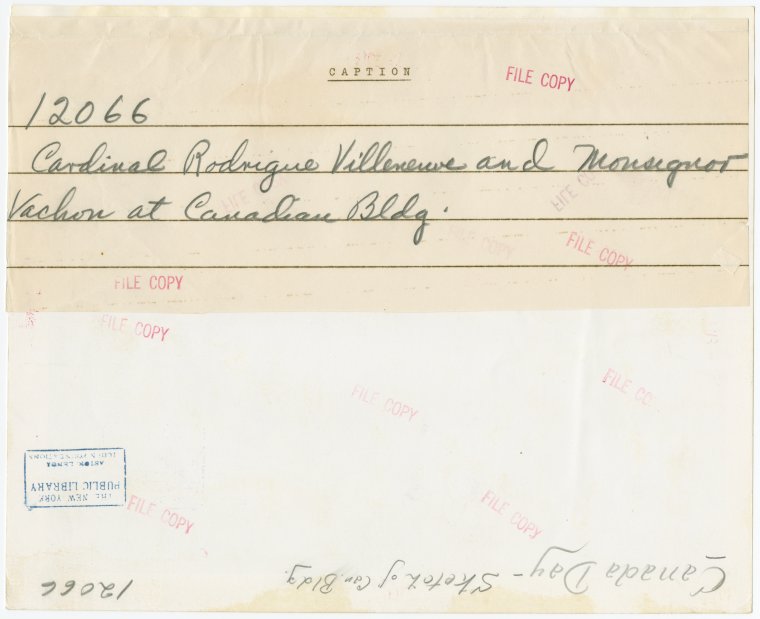 CAPTION
FILE COPY
12066
Cardinal Rodrigue Villeneuve and Monsignor
Vachon at Canadian Bldg.
FILE CO
FILE COPY
FILE COPY
FILE COPY
FILE COPY
FILE COPY
FILE CO
THE NEW YORK
PUBLIC LIBRARY
ASTOR, LENOX
TILDEN FOUNDATIONS
FILE COPY
FILE COPY
Canada Day - Sketch of Can. Bldg.
12066